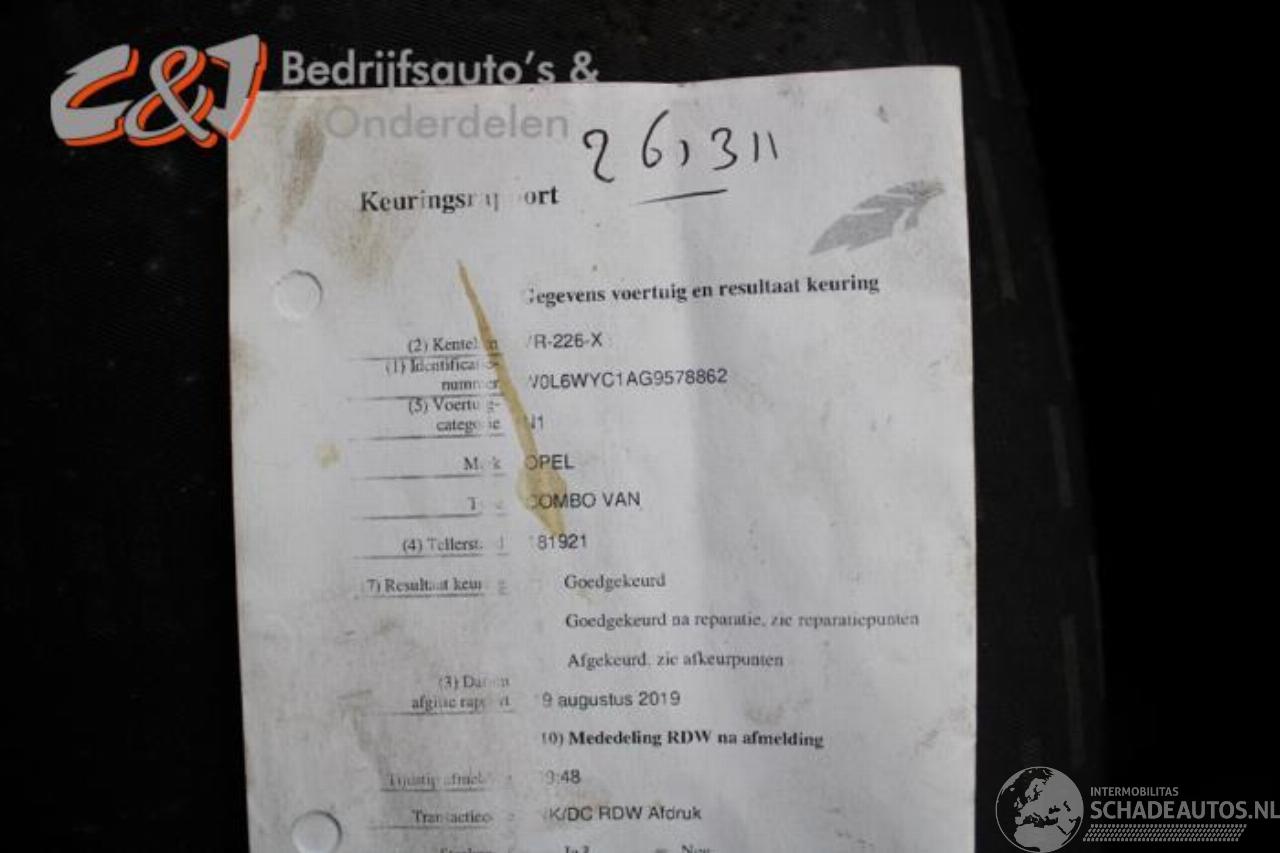 C&J Bedrijfsauto's &
Onderdelen
26,311
Keuringsrapport
Gegevens voertuig en resultaat keuring
(2) Kenteken /R-226-X
(1) Identificatie-
nummer V0L6WYC1AG9578862
(5) Voertuig-
categorie N1
Merk OPEL
Type COMBO VAN
(4) Tellerstand 181921
(7) Resultaat keuring Goedgekeurd
Goedgekeurd na reparatie, zie reparatiepunten
Afgekeurd, zie afkeurpunten
(3) Datum
afgifte rapport 9 augustus 2019
10) Mededeling RDW na afmelding
Tijdstip afmelding 9:48
Transactiecode K/DC RDW Afdruk
INTERMOBILITAS
SCHADEAUTOS.NL